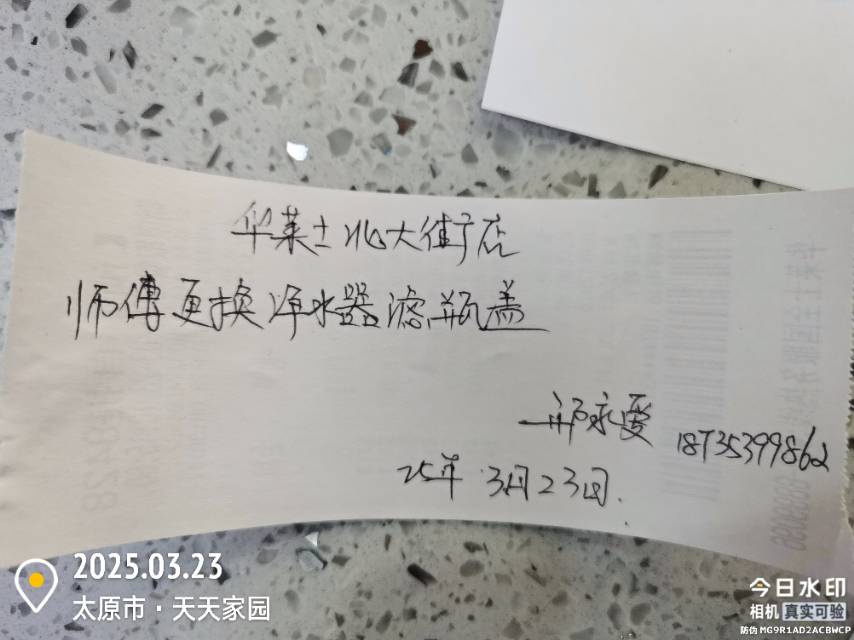 华莱士北大街店
师傅更换净水器滤瓶盖
邢永爱 18735399862
25年3月23日.
2025.03.23
太原市·天天家园
今日水印
相机真实可验
防伪 MG9R1AD2ACBWCP